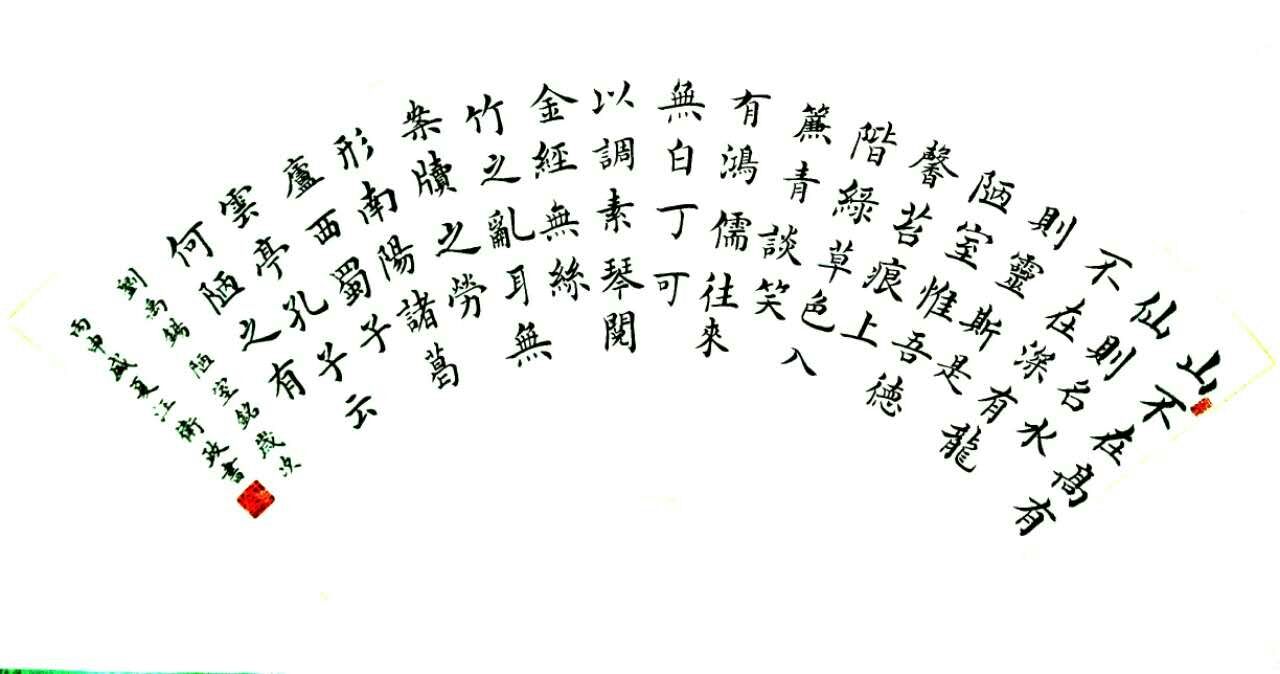 山不在高有
仙則名水
不在深有龍
則靈斯是
陋室惟吾德
馨苔痕上
階綠草色入
簾青談笑
有鴻儒往來
無白丁可
以調素琴閱
金經無絲
竹之亂耳無
案牘之勞
形南陽諸葛
廬西蜀子
雲亭孔子云
何陋之有
劉禹錫陋室銘歲次
丙申盛夏江衛政書